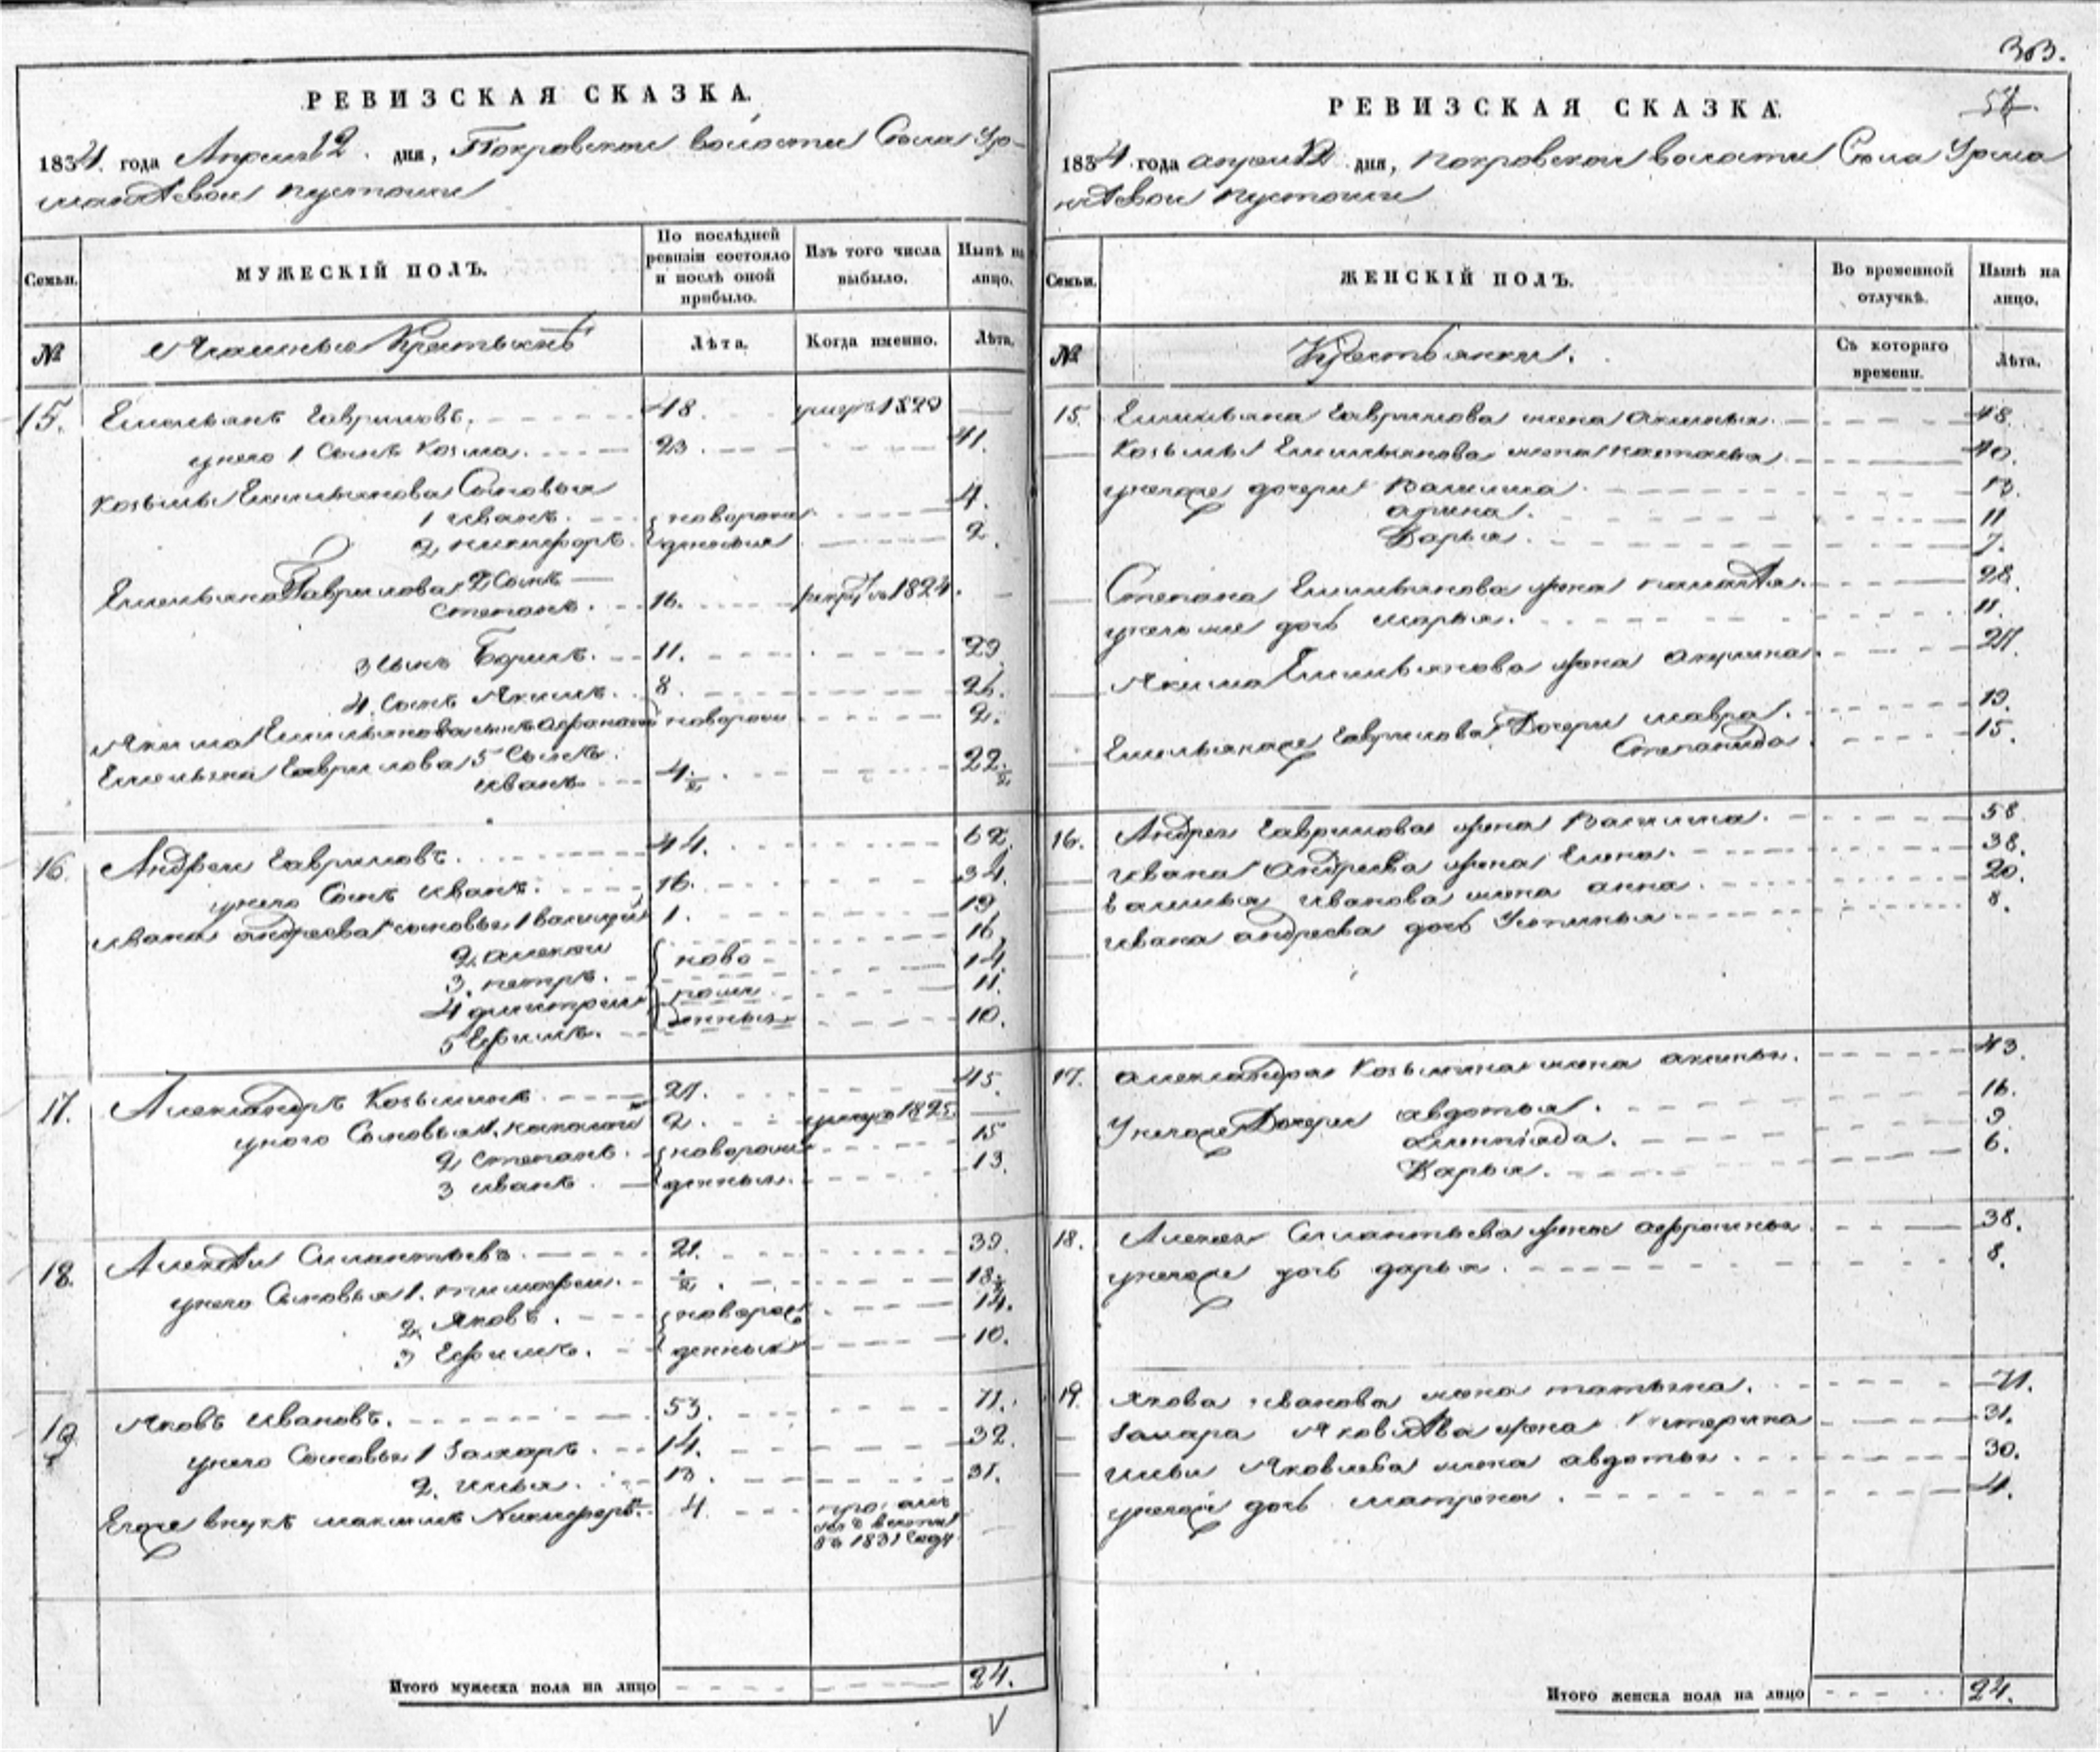 РЕВИЗСКАЯ СКАЗКА.
1834 года Апреля 12 дня, Покровской волости Села Ур-
мантеевой пустоши
Семьи.
МУЖЕСКІЙ ПОЛЪ.
По послѣдней ревизіи состояло и послѣ оной прибыло.
Изъ того числа выбыло.
Нынѣ на лицо.
№
Крестьянъ
Лѣта.
Когда именно.
Лѣта.
15. Емельянъ Гавриловъ. 48. умеръ 1820
у него 1 Сынъ Козма. 23 41.
Козьмы Емельянова Сыновья
1 Иванъ. новорож 4.
2 Никифоръ. денныя 2.
Емельяна Гаврилова 2 Сынъ
Степанъ. 16. 1824.
3 Сынъ Борисъ. 11. 29
4. Сынъ Якимъ. 8 26.
Якима Емельянова сынъ новорож 2.
Емельяна Гаврилова 5 Сынъ.
Иванъ 4 1/2 22 1/2
16. Андрей Гавриловъ. 44. 62.
у него Сынъ Иванъ. 16. 34.
Ивана Андреева сыновья 1 Василий 1. 19
2. Алексей ново 16
3. Петръ. рож 14
4 Дмитрий 11.
5 Ефимъ. денныя 10.
17. Александръ Козьминъ 27. 45.
у него Сыновья 1. 2. умеръ 1825
2 Степанъ. новорож 15
3 Иванъ денныя. 13.
18. Алексей Силантьевъ 21. 39.
у него Сыновья 1. Тимофей. 1/2. 18 1/2
2. Яковъ. новорож 14.
3 Ефимъ. денныя 10.
19. Яковъ Ивановъ. 53. 71.
у него Сыновья 1 Захаръ. 14. 32.
2. Илья. 13. 31.
Егоже внукъ Максимъ Никифоръ. 4
въ 1831 году
Итого мужеска пола на лицо 24.
303.
57.
РЕВИЗСКАЯ СКАЗКА.
1834 года Апреля 12 дня, Покровской волости Села Урма
нтеевой пустоши
Семьи.
ЖЕНСКІЙ ПОЛЪ.
Во временной отлучкѣ.
Нынѣ на лицо.
№
Крестьянки.
Съ котораго времени.
Лѣта.
15. Емельяна Гаврилова жена Аксинья. 48.
Козьмы Емельянова жена Наталья. 40.
у негоже дочери Василиса 13.
Арина. 11
Дарья. 7.
Степана Емельянова жена 28.
у него же дочь Марья. 11.
Якима Емельянова жена Акулина. 27.
Емельянаже Гаврилова Дочери Мавра. 19.
Степанида 15.
16. Андрея Гаврилова жена Василиса. 58
Ивана Андреева жена Елена. 38.
Василья Иванова жена Анна 20.
Ивана Андреева дочь Устинья 8.
17. Александра Козьмина жена Аксинья. 43.
У негоже Дочери Авдотья. 16.
9
Дарья. 6.
18. Алексея Силантьева жена Афросинья 38.
у негоже дочь Дарья. 8.
19. Якова Иванова жена Татьяна. 71.
Захара Яковлева жена Катерина 31.
Ильи Яковлева жена Авдотья. 30.
дочь Матрена. 4.
Итого женска пола на лицо 24.